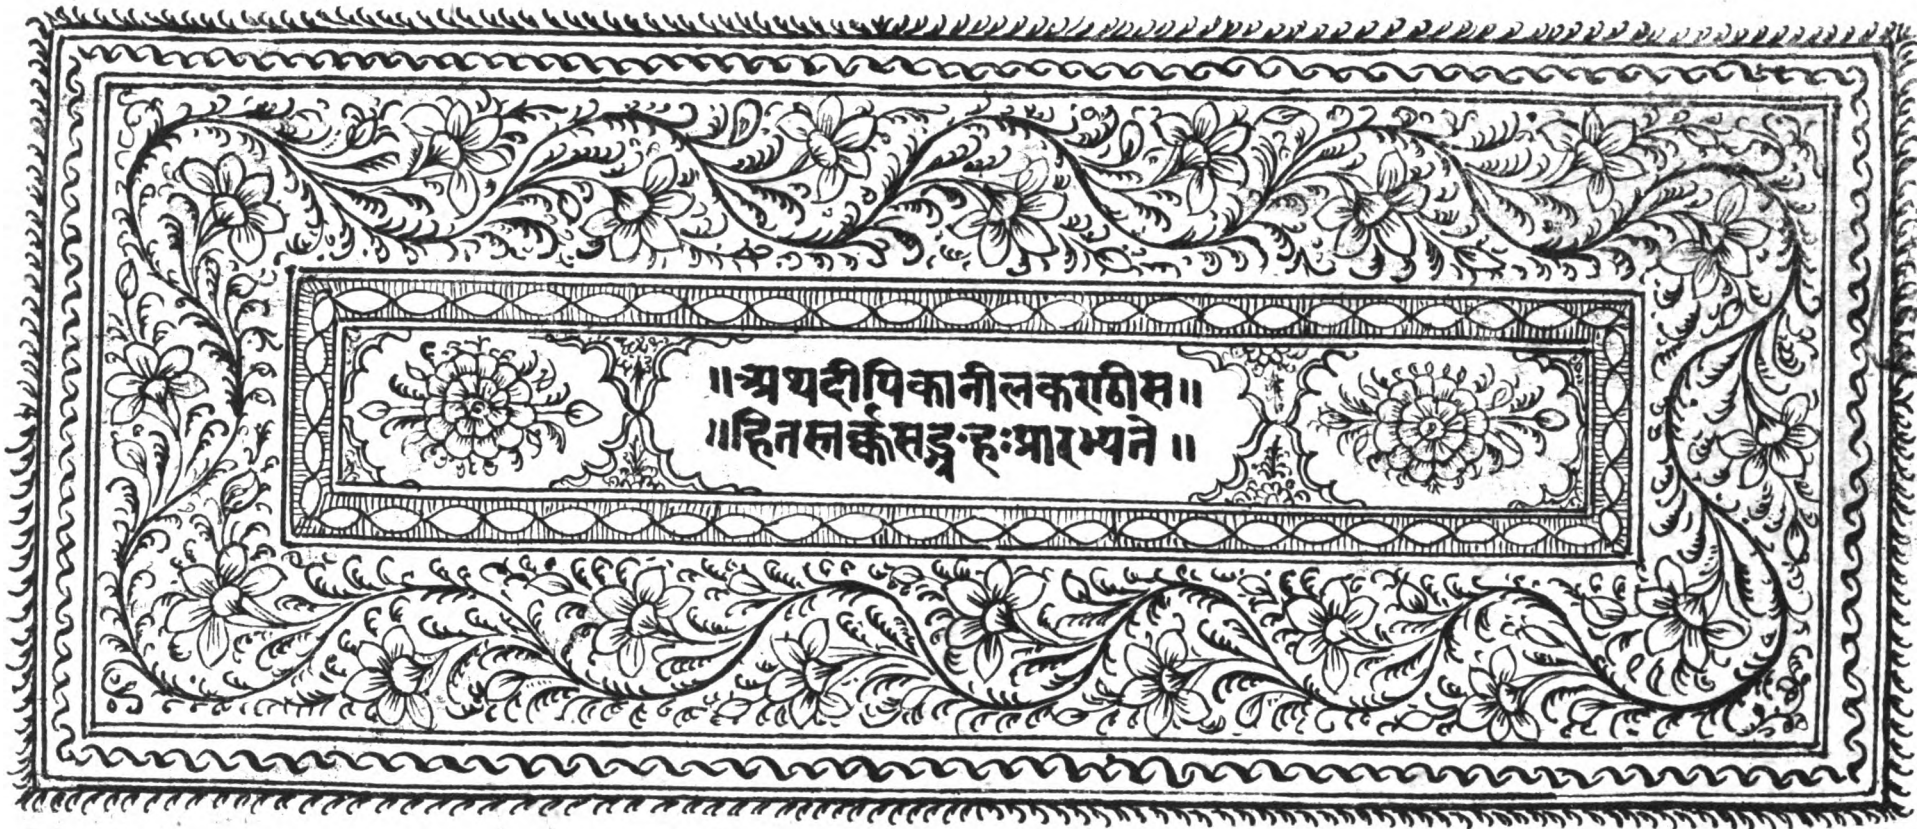 ॥अथदीपिकानीलकराठीस॥
॥हितस्तर्क्कसङ्ग्रहःप्रारभ्यते॥